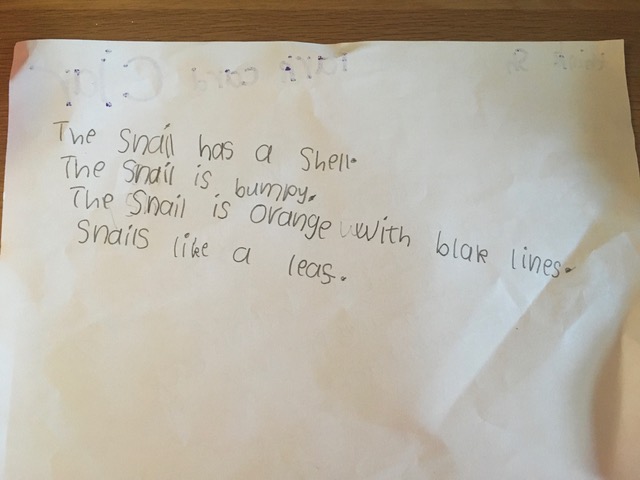 The Snail has a Shell.
The Snail is bumpy.
The Snail is Orange with blak lines.
Snails like a leas.